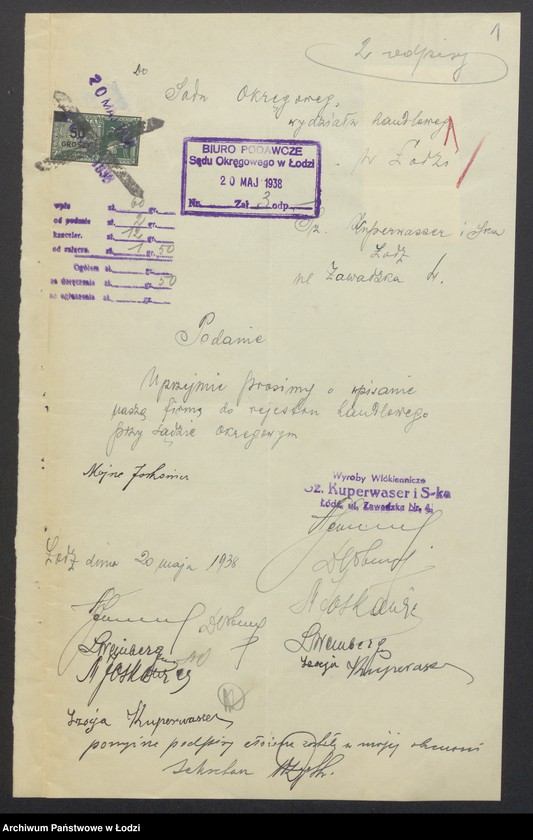 1
2 podpisy
Do
Sądu Okręgowego,
wydziału handlowego
w Łodzi
20 MAJ
50
GROSZY
1938
BIURO PODAWCZE
Sądu Okręgowego w Łodzi
20 MAJ 1938
Nr. Zał 3 odp.
wpis zł. 60 gr.
od podania zł. 2 gr.
kancelar. zł. 12 gr.
od załącz. zł. 1 gr. 50
Ogółem zł. gr.
za doręczenie zł. gr. 50
za ogłoszenie zł. gr.
Sz. Kuperwasser i S-ka
Łódź
ul. Zawadzka 4.
Podanie
Uprzejmie prosimy o wpisanie
naszą firmę do rejestru handlowego
przy Sądzie Okręgowym
Wyroby Włókiennicze
Sz. Kuperwaser i S-ka
Łódź, ul. Zawadzka Nr. 4.
Łódź dnia 20 maja 1938
N Joskowicz
L Wajnberg
L Wajnberg
N Joskowicz
Szaja Kuperwaser
Szaja Kuperwaser
powyższe podpisy złożone zostały w mojej obecności
Sekretarz
Archiwum Państwowe w Łodzi